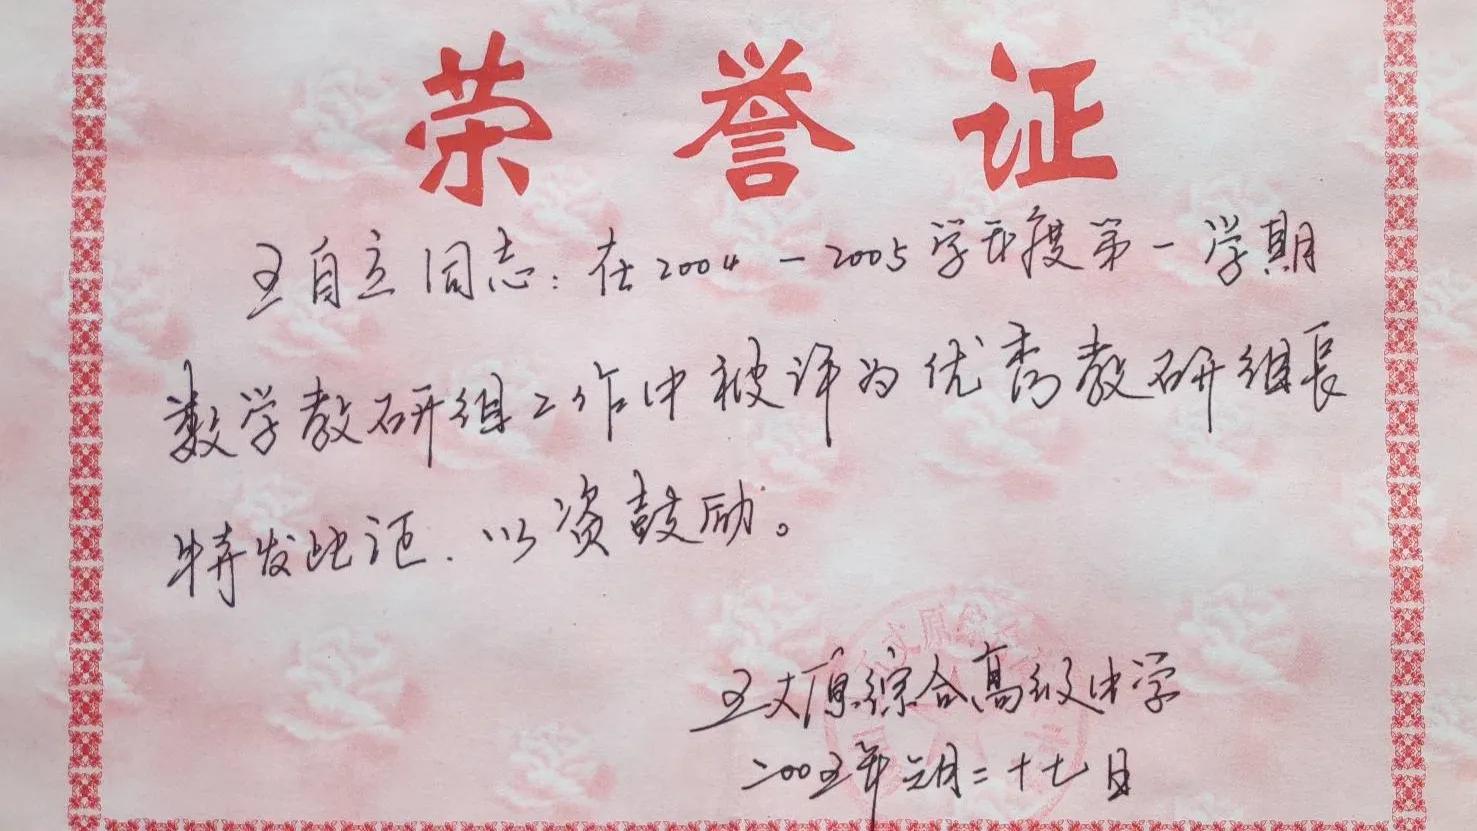 荣誉证
王自立同志：在2004－2005学年度第一学期
数学教研组工作中被评为优秀教研组长
特发此证．以资鼓励。
王文原综合高级中学
二00五年元月二十七日